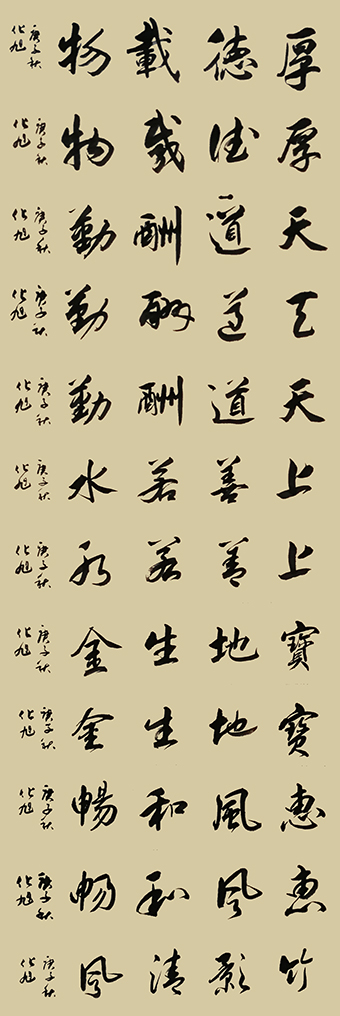 厚德載物
庚子秋
化旭
厚德載物
庚子秋
化旭
天道酬勤
庚子秋
化旭
天道酬勤
庚子秋
化旭
天道酬勤
庚子秋
化旭
上善若水
庚子秋
化旭
上善若水
庚子秋
化旭
寶地生金
庚子秋
化旭
寶地生金
庚子秋
化旭
惠風和暢
庚子秋
化旭
惠風和暢
庚子秋
化旭
竹影清風
庚子秋
化旭